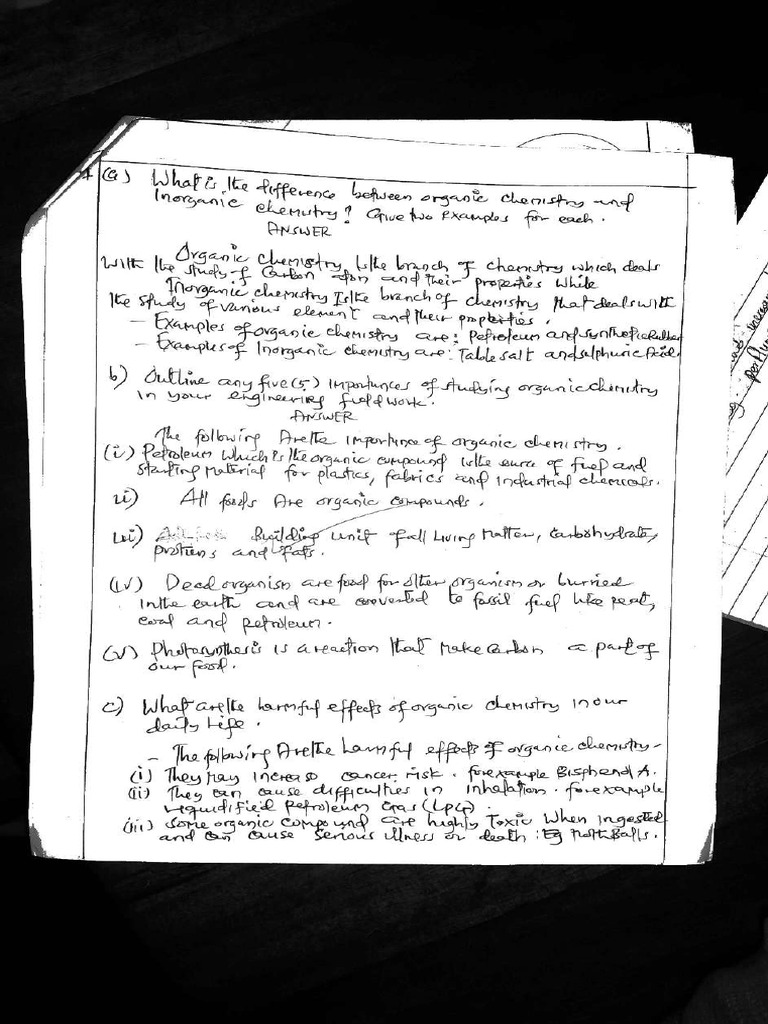 1 (a) What is the difference between organic chemistry and
Inorganic chemistry? Give two Examples for each.
ANSWER
Organic chemistry Is the branch of chemistry which deals
with the study of Carbon atom and their properties while
Inorganic chemistry Is the branch of chemistry that deals with
the study of various element and their properties.
- Examples of organic chemistry are: Petroleum and synthetic Rubber
- Examples of Inorganic chemistry are: Table salt and sulphuric Acid.
b) Outline any five (5) importances of studying organic chemistry
in your engineering field work.
ANSWER
The following Are the importance of organic chemistry.
(i) Petroleum which is the organic compound is the source of fuel and
starting Material for plastics, fabrics and industrial chemicals.
ii) All foods Are organic compounds.
iii) Building unit of all Living Matter, carbohydrate,
proteins and fats.
(iv) Dead organism are food for other organism or burried
in the earth and are converted to fossil fuel like peat,
coal and petroleum.
(v) Photosynthesis is a reaction that make carbon a part of
our food.
c) What are the harmful effects of organic chemistry in our
daily life.
- The following Are the harmful effects of organic chemistry -
(i) They may increase cancer risk. for example Bisphenol A.
(ii) They can cause difficulties in inhalation. for example
Liquidified Petroleum Gas (LPG).
(iii) Some organic compound are highly Toxic when ingested
and can cause serious illness or death: Eg Moth Balls.